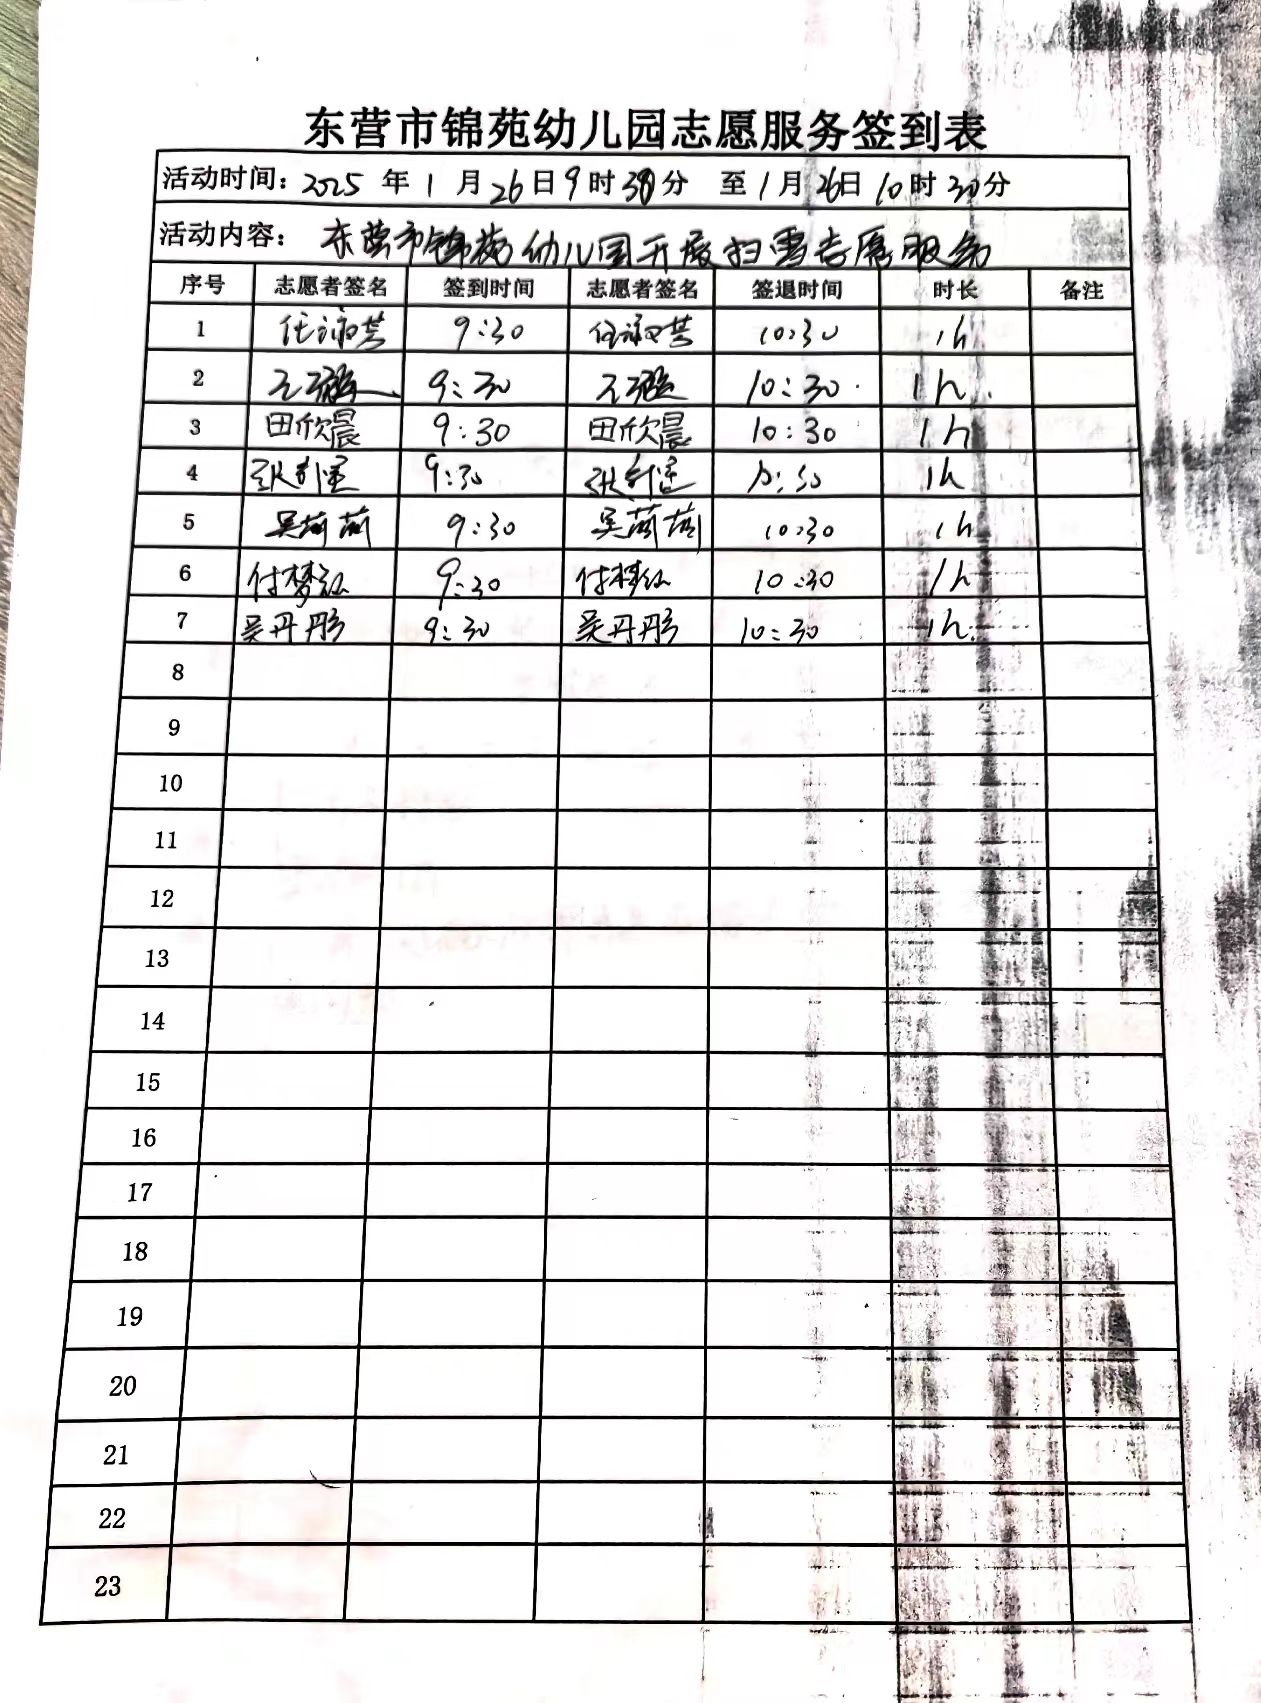 东营市锦苑幼儿园志愿服务签到表
活动时间：2025 年 1 月 26 日 9 时 30 分 至 1 月 26 日 10 时 30 分
活动内容：东营市锦苑幼儿园开展扫雪志愿服务
序号 志愿者签名 签到时间 志愿者签名 签退时间 时长 备注
1 任淑芸 9:30 任淑芸 10:30 1h
2 9:30 10:30 1h
3 田欣晨 9:30 田欣晨 10:30 1h
4 9:30 10:30 1h
5 吴茜茜 9:30 吴茜茜 10:30 1h
6 付梦 9:30 付梦 10:30 1h
7 吴丹彤 9:30 吴丹彤 10:30 1h
8
9
10
11
12
13
14
15
16
17
18
19
20
21
22
23